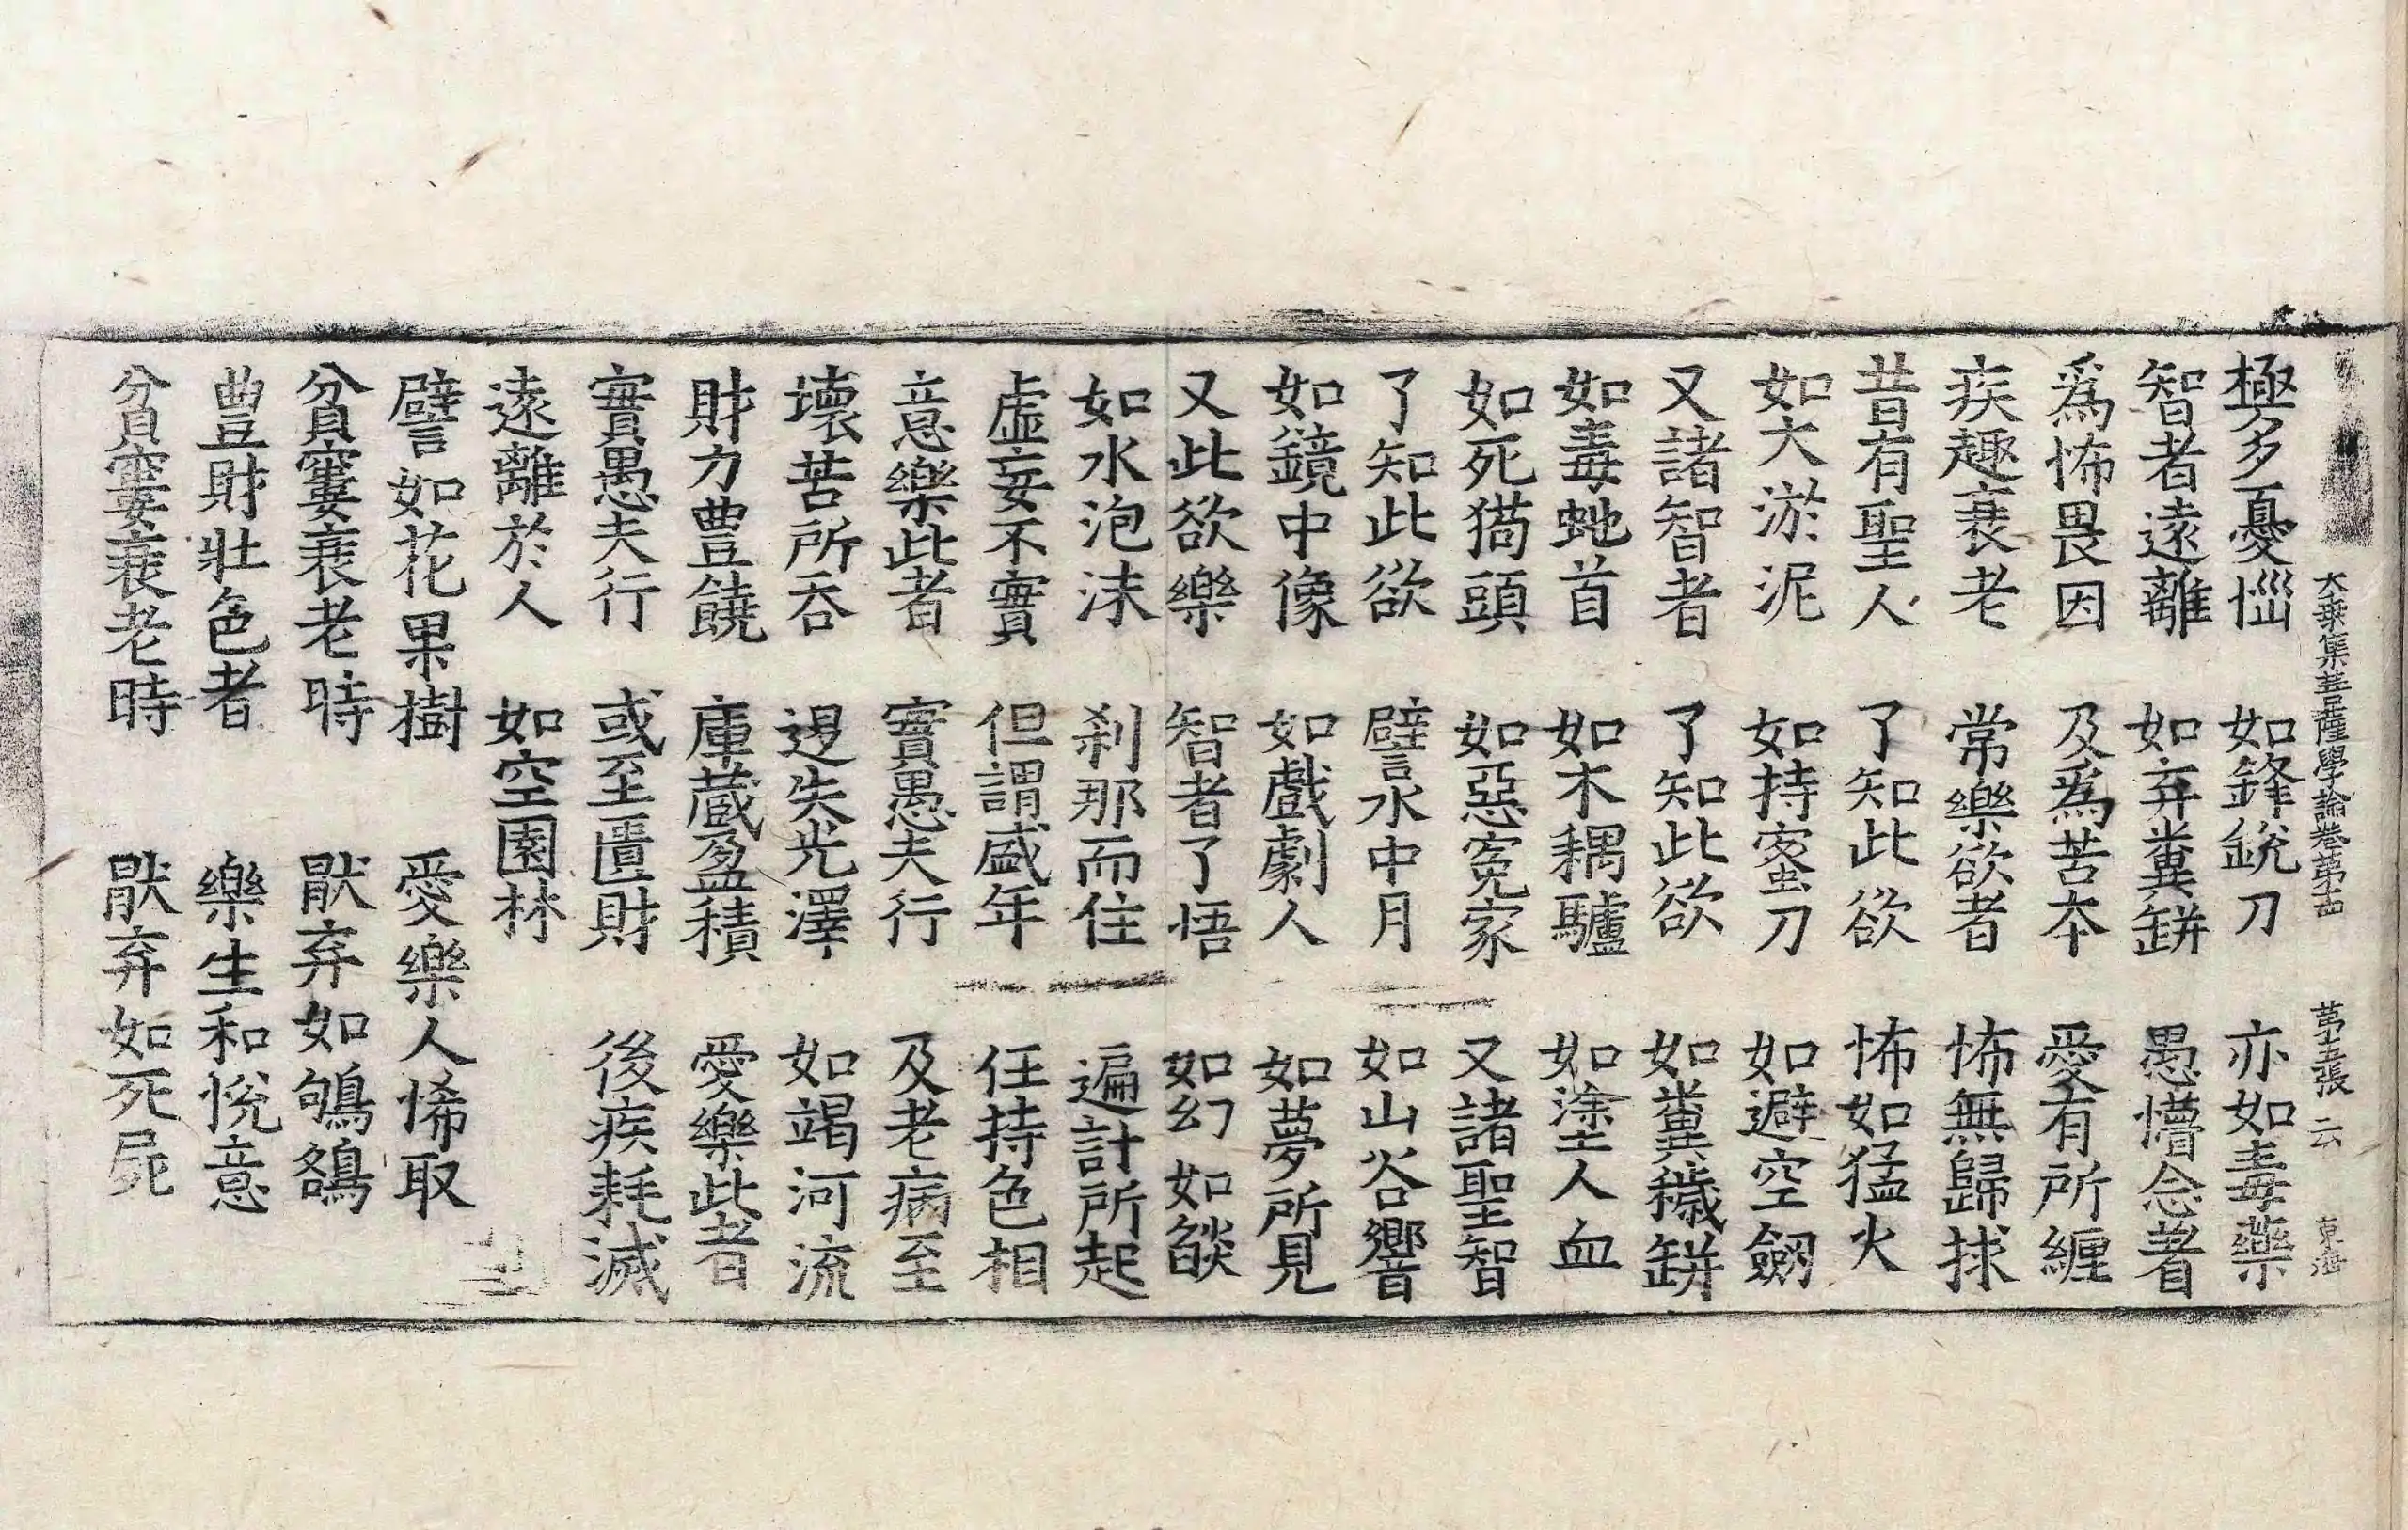 大乗集菩薩學論卷第十四 第十五張 云 東海
極多憂惱 如鋒銳刀 亦如毒藥
智者遠離 如弃糞缾 愚懵念著
爲怖畏因 及爲苦本 愛有所纏
疾趣衰老 常樂欲者 怖無歸捄
昔有聖人 了知此欲 怖如猛火
如大淤泥 如持蜜刀 如避空劒
又諸智者 了知此欲 如糞穢缾
如毒虵首 如木耦驢 如塗人血
如死猫頭 如惡寃家 又諸聖智
了知此欲 譬水中月 如山谷響
如鏡中像 如戲劇人 如夢所見
又此欲樂 智者了悟 如幻如燄
如水泡沫 刹那而住 遍計所起
虛妄不實 但謂盛年 任持色相
意樂此者 實愚夫行 及老病至
壞苦所吞 退失光澤 如竭河流
財力豊饒 庫蔵盈積 愛樂此者
實愚夫行 或至匱財 後疾耗滅
遠離於人 如空園林
譬如花果樹 愛樂人悕取
貧窶衰老時 猒弃如鴝鵒
豊財壯色者 樂生和悅意
貧窶衰老時 猒弃如死屍